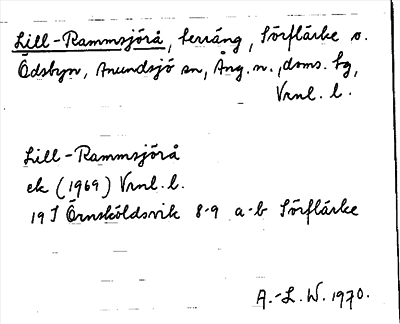 Lill-Rammsjörå, terräng, Sörflärke o.
Ödsbyn, Anundsjö sn, Ång. n., doms. tg,
Vrnl. l.
Lill-Rammsjörå
ek (1969) Vrnl. l.
19 I Örnsköldsvik 8-9 a-b Sörflärke
A.-L. W. 1970.